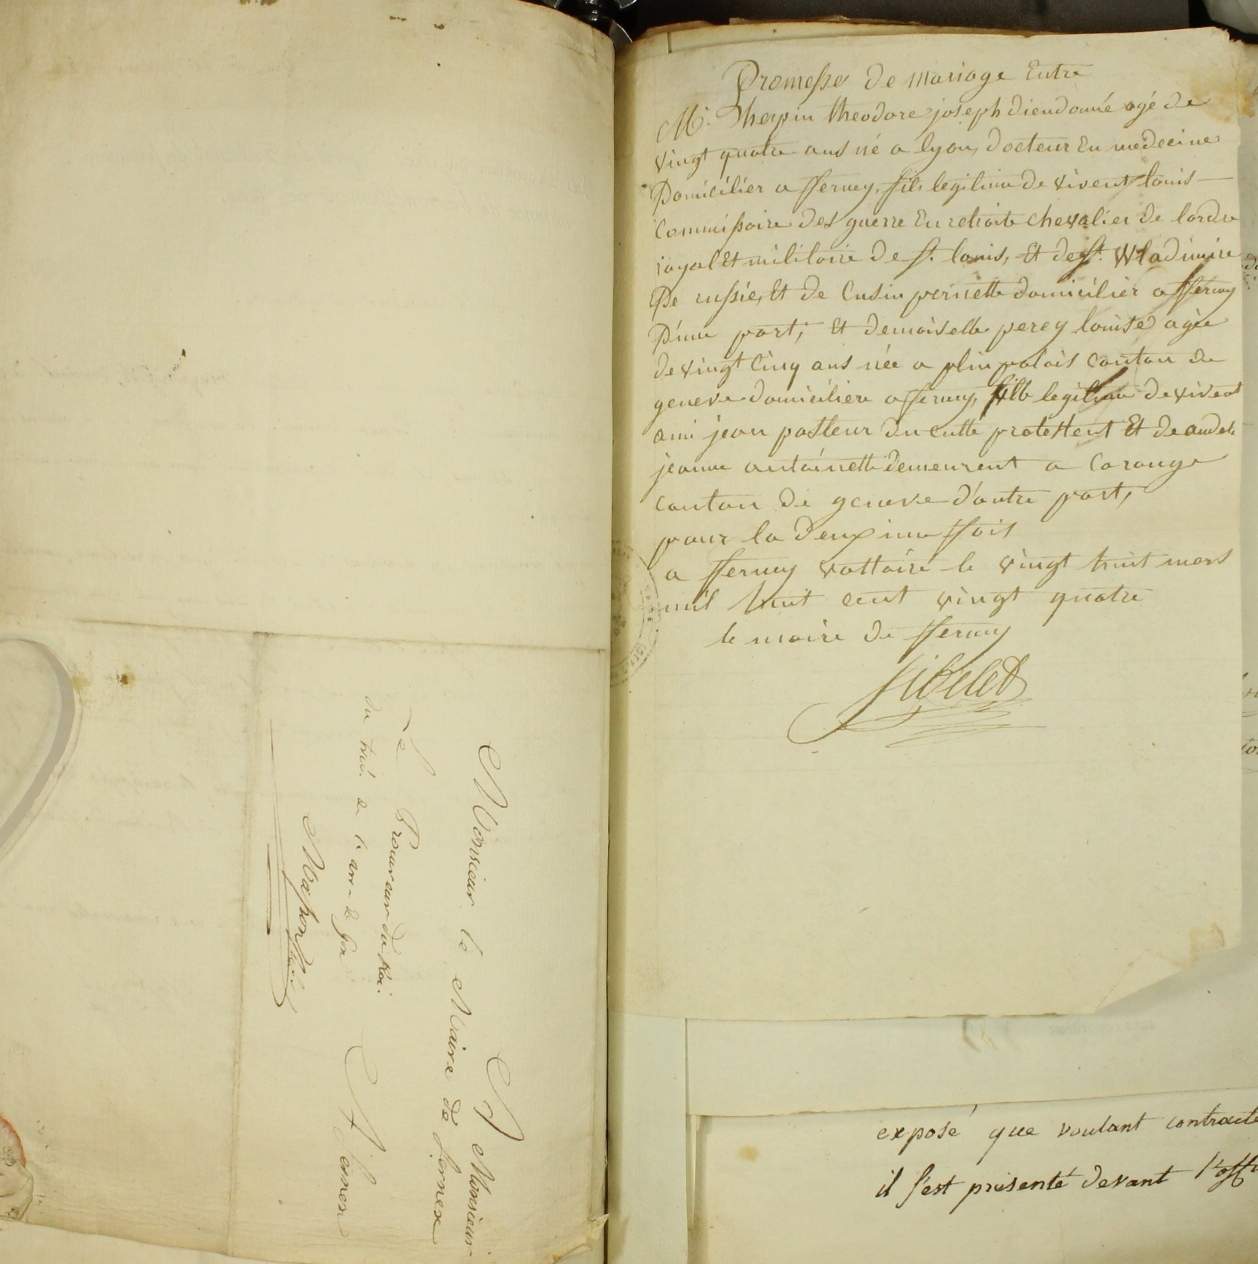 Promesse de mariage Entre
Mr. Therpin theodore joseph diendonné agé de
vingt quatre ans né a lyon, docteur En medecine
Domicilier a fferney, fils legitime de vivent louis
Commissaire des guerre En retraite chevalier de lordre
royal Et militaire de st. louis, Et de st. Wladimire
De russie, Et de Cusin pernette domicilier a fferney
D'une part; Et demoiselle percy louise agée
de vingt Cinq ans née a plinpalais Canton de
geneve domiciliere a ferney, fille legitime de vivent
ami jean pasteur du culte protestent Et de
jeanne antoinette Demeurent a Carouge
Canton de geneve d'autre part,
pour la deuxime ffois
a fferney voltaire le vingt huit mars
mil huit cent vingt quatre
le maire de fferney
A Monsieur
Monsieur le Maire de fernex
A fernex
Le Procureur du Roi
du trib. de
exposé que voulant contracte
il s'est présenté devant l'offi